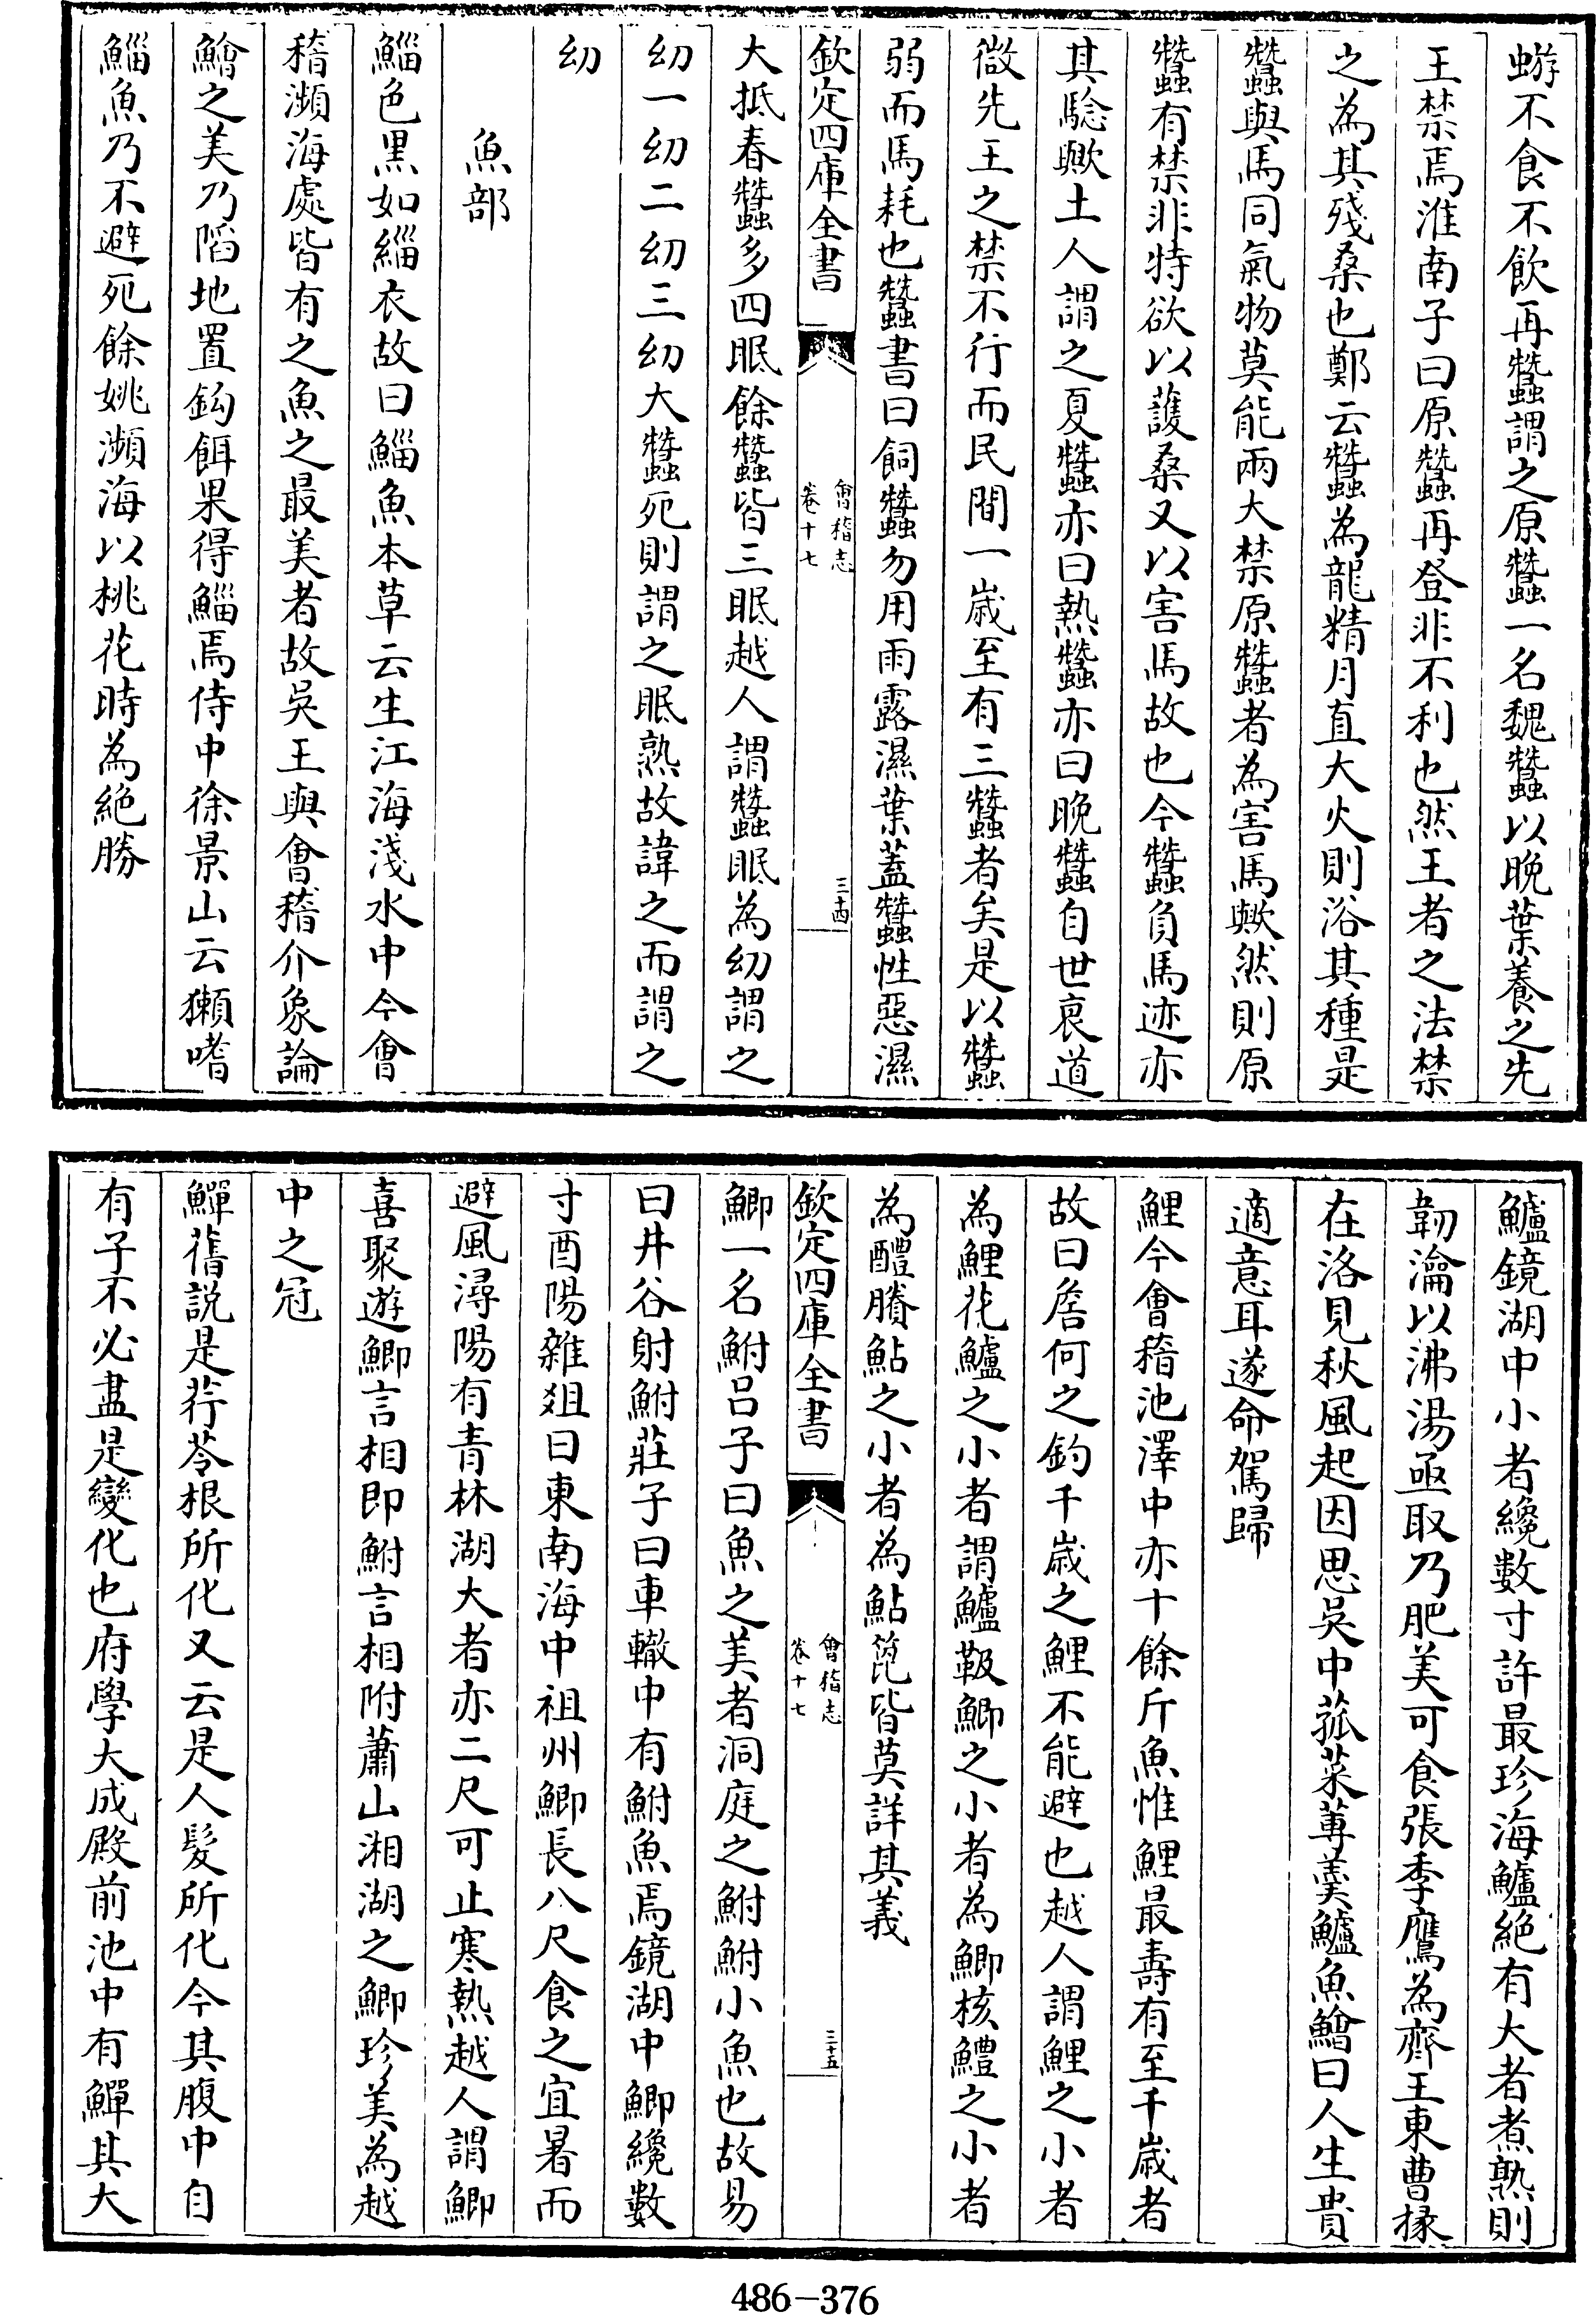 蝣不食不飲再蠶謂之原蠶一名魏蠶以晚葉養之先
王禁焉淮南子曰原蠶再登非不利也然王者之法禁
之為其殘桑也鄭云蠶為龍精月直大火則浴其種是
蠶與馬同氣物莫能兩大禁原蠶者為害馬歟然則原
蠶有禁非特欲以䕶桑又以害馬故也今蠶負馬迹亦
其騐歟土人謂之夏蠶亦曰熱蠶亦曰晚蠶自世衰道
微先王之禁不行而民間一嵗至有三蠶者矣是以蠶
弱而馬耗也蠶書曰飼蠶勿用雨露濕葉蓋蠶性惡濕
欽定四庫全書
會稽志
卷十七
三十四
大抵春蠶多四眠餘蠶皆三眠越人謂蠶眠為幼謂之
幼一幼二幼三幼大蠶死則謂之眠熟故諱之而謂之
幼
魚部
鯔色黑如緇衣故曰鯔魚本草云生江海淺水中今會
稽瀕海處皆有之魚之最美者故吳王與會稽介象論
鱠之美乃䧟地置鈎餌果得鯔焉侍中徐景山云獺嗜
鯔魚乃不避死餘姚瀕海以桃花時為絶勝
鱸鏡湖中小者纔數寸許最珍海鱸絶有大者煮熟則
韌瀹以沸湯亟取乃肥美可食張季鷹為齊王東曹掾
在洛見秋風起因思吳中菰菜蓴羹鱸魚鱠曰人生貴
適意耳遂命駕歸
鯉今會稽池澤中亦十餘斤魚惟鯉最壽有至千嵗者
故曰詹何之釣千嵗之鯉不能避也越人謂鯉之小者
為鯉花鱸之小者謂鱸䩗鯽之小者為鯽核鱧之小者
為醴䲢鮎之小者為鮎箆皆莫詳其義
欽定四庫全書
會稽志
卷十七
三十五
鯽一名鮒吕子曰魚之美者洞庭之鮒鮒小魚也故易
曰井谷射鮒莊子曰車轍中有鮒魚焉鏡湖中鯽纔數
寸酉陽雜俎曰東南海中祖州鯽長八尺食之宜暑而
避風潯陽有青林湖大者亦二尺可止寒熱越人謂鯽
喜聚遊鯽言相即鮒言相附蕭山湘湖之鯽珍美為越
中之冠
鱓舊説是荇芩根所化又云是人髮所化今其腹中自
有子不必盡是變化也府學大成殿前池中有鱓其大
486-376